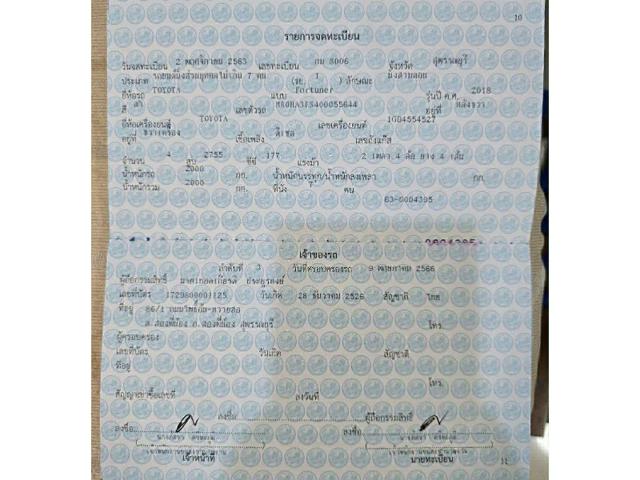 10
รายการจดทะเบียน
วันจดทะเบียน 2 พฤศจิกายน 2563 เลขทะเบียน กม 8006 จังหวัด สุพรรณบุรี
ประเภท รถยนต์นั่งส่วนบุคคลไม่เกิน 7 คน (รย. 1 ) ลักษณะ
ยี่ห้อรถ TOYOTA แบบ Fortuner รุ่นปี ค.ศ. 2018
สี เลขตัวรถ อยู่ที่
ยี่ห้อเครื่องยนต์ TOYOTA เลขเครื่องยนต์ 1GD4554527
อยู่ที่ ขวาเครื่อง เชื้อเพลิง ดีเซล เลขถังแก๊ส
จำนวน 4 สูบ 2755 ซีซี 177 แรงม้า 2 เพลา 4 ล้อ ยาง 4 เส้น
น้ำหนักรถ 2000 กก. น้ำหนักบรรทุก/น้ำหนักลงเพลา กก.
น้ำหนักรวม 2000 กก. ที่นั่ง 7 คน
63-0004395
เจ้าของรถ
ลำดับที่ 3 วันที่ครอบครองรถ 9 พฤษภาคม 2566
ผู้ถือกรรมสิทธิ์
เลขที่บัตร 1729800001125 วันเกิด 28 ธันวาคม 2526 สัญชาติ ไทย
ที่อยู่ 86/1
ต.สองพี่น้อง อ.สองพี่น้อง สุพรรณบุรี โทร.
ผู้ครอบครอง
เลขที่บัตร วันเกิด สัญชาติ
ที่อยู่
โทร.
สัญญาเช่าซื้อเลขที่ ลงวันที่
ลงชื่อ ผู้ถือกรรมสิทธิ์
ลงชื่อ ลงชื่อ
เจ้าหน้าที่ นายทะเบียน
11